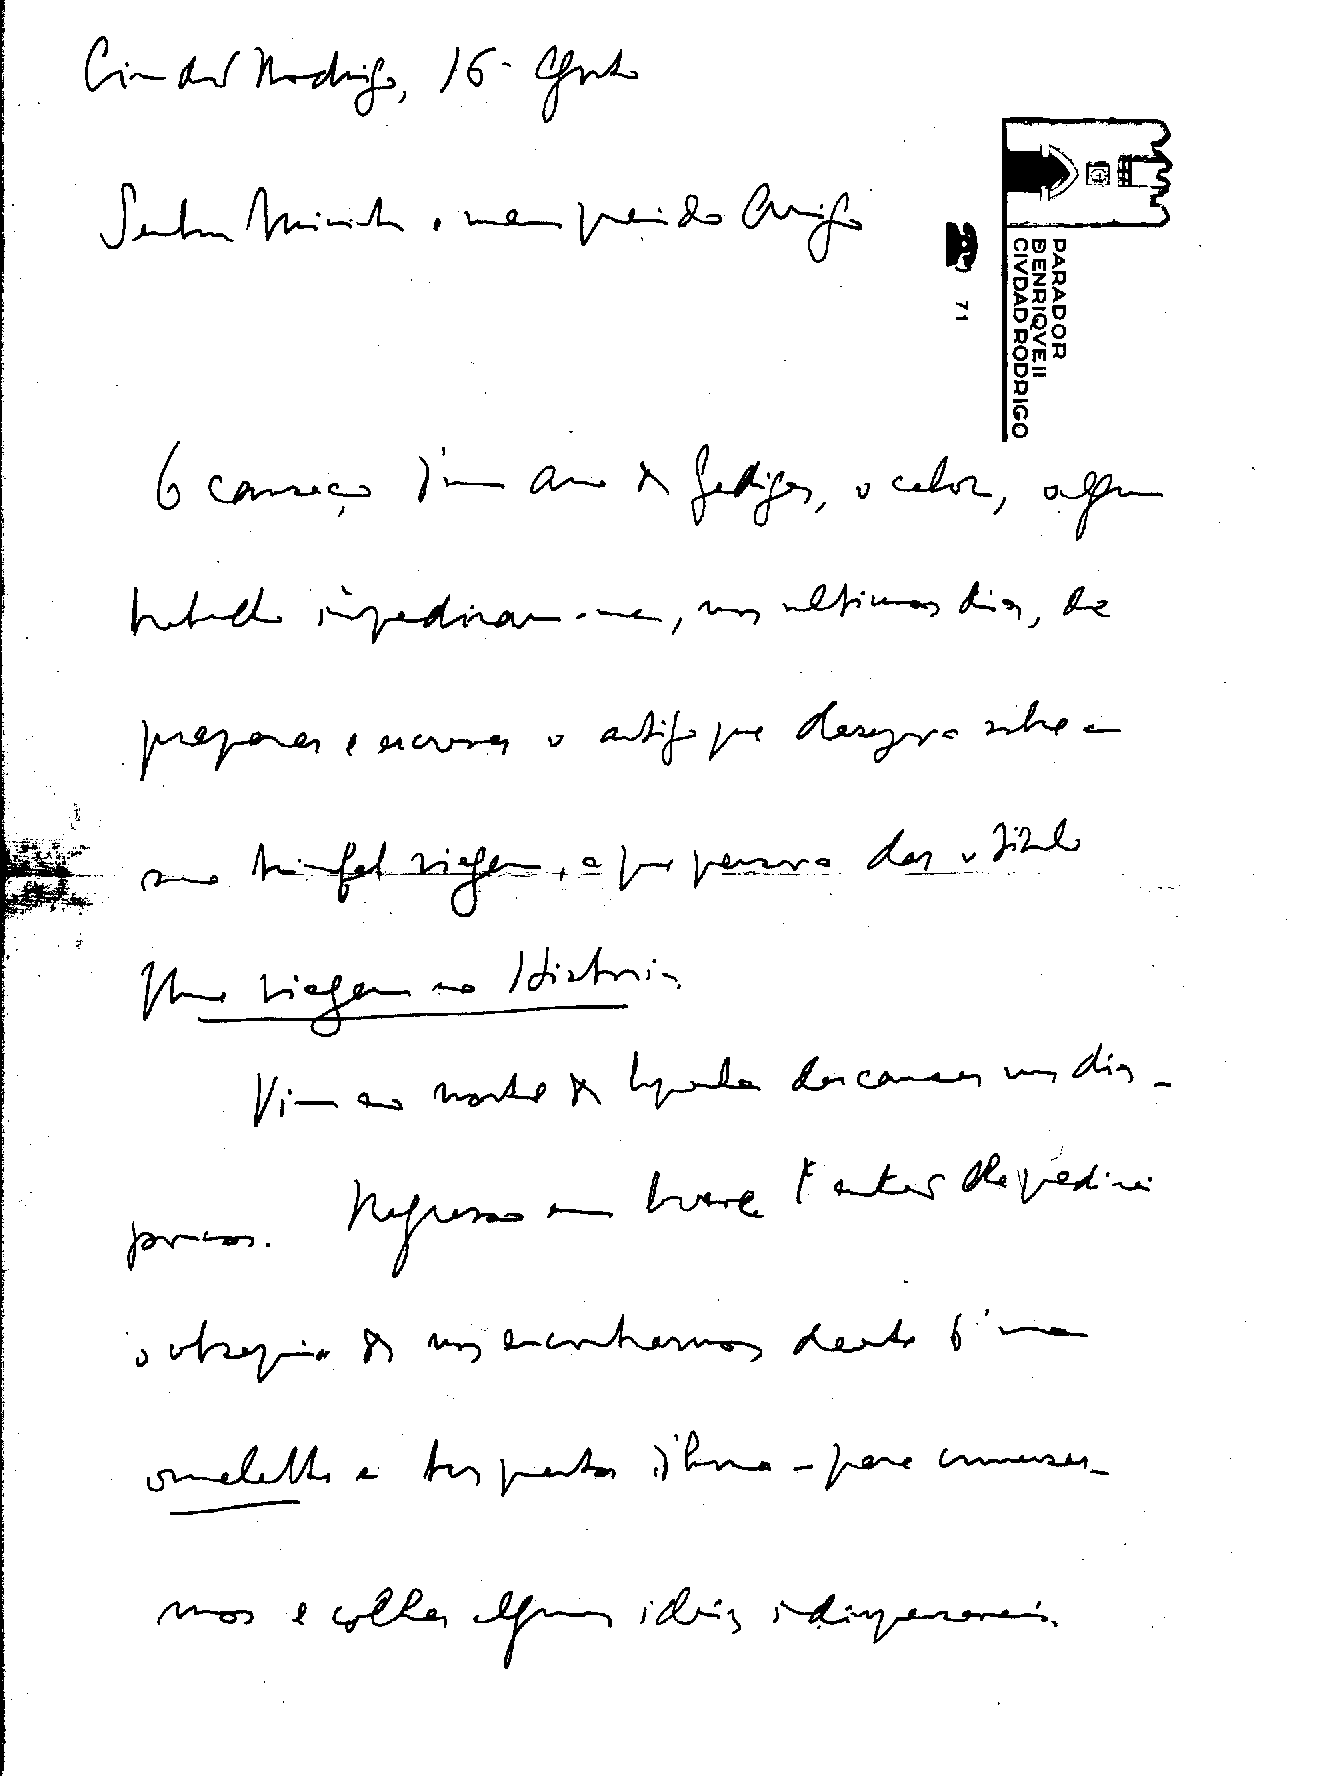 Ciudad Rodrigo, 16 - Agosto
PARADOR
D ENRIQVE II
CIVDAD RODRIGO
71
Senhor Ministro e meu querido Amigo
O cansaço d'um ano de fadigas, o calor, algum
trabalho impediram-me, nos ultimos dias, de
preparar e escrever o artigo que desejava sobre a
sua triunfal viagem, a que pensava dar o título
Uma viagem na Historia
Vim ao norte de Espanha descansar uns dias
poucos. Regresso em breve e antes lhe pedirei
o obsequio de nos encontrarmos deante d'uma
omelette e tres pontos d'[] - para conversar-
mos e colher algumas idéias indispensaveis.